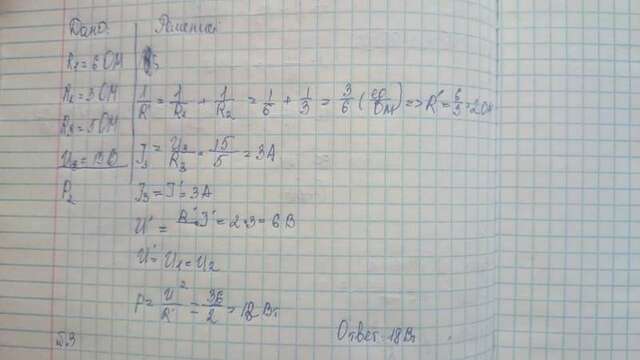 Дано:
R₁ = 6 Ом
R₂ = 3 Ом
R₃ = 5 Ом
U₃ = 15 В
P₂
Решение:
1/R' = 1/R₁ + 1/R₂ = 1/6 + 1/3 = 3/6 ( ) => R' = 6/3 = 2 Ом
I₃ = U₃/R₃ = 15/5 = 3А
I₃ = I' = 3А
U' = R'I' = 2·3 = 6В
U' = U₁ = U₂
P = U²/R' = 36/2 = 18 Вт
Ответ: 18Вт
5.9